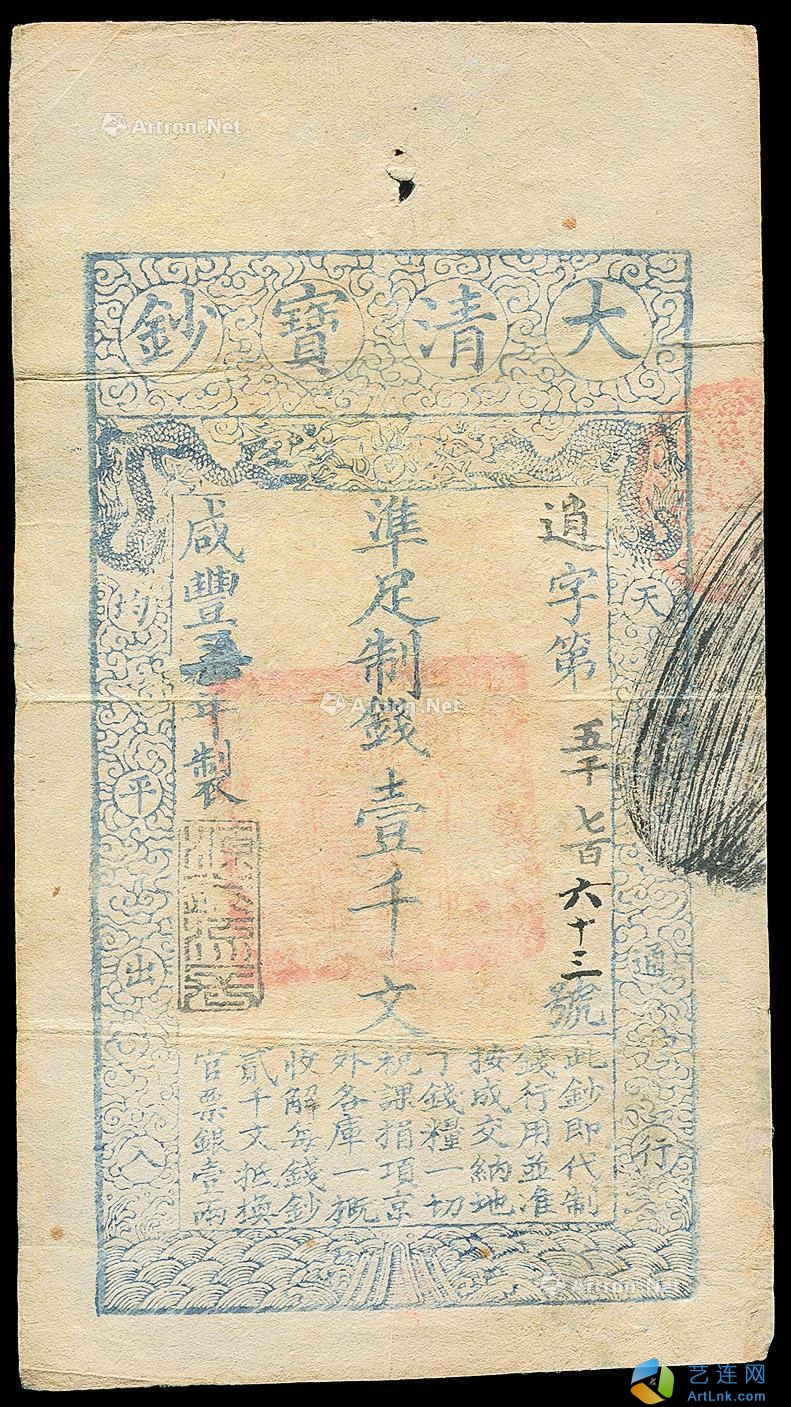 Artron.Net
大清寶鈔
天下通行
均平出入
逍字第五千七百六十三號
準足制錢壹千文
咸豐五年製
此鈔即代制
錢行用並准
按成交納地
丁錢糧一切
稅課捐項京
外各庫一概
收解每錢鈔
貳千文抵換
官票銀壹兩
Artron.Net
Artron.Net
艺连网
ArtLnk.com